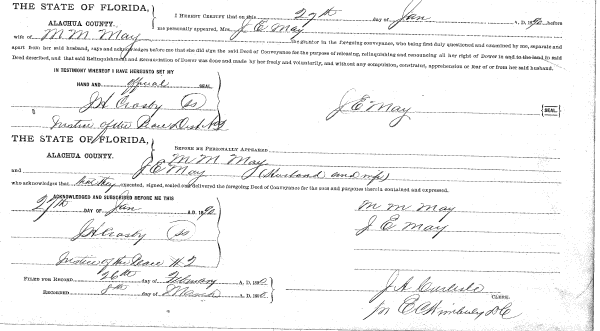 THE STATE OF FLORIDA,
ALACHUA COUNTY.
I HEREBY CERTIFY that on this 27th day of Jan A. D. 1890, before
me personally appeared, Mrs. J. E. May
wife of M. M. May the grantor in the foregoing conveyance, who being first duly questioned and examined by me, separate and
apart from her said husband, says and acknowledges before me that she did sign the said Deed of Conveyance for the purpose of releasing, relinquishing and renouncing all her right of Dower in and to the land so said
Deed described, and that said Relinquishment and Renunciation of Dower was done and made by her freely and voluntarily, and without any compulsion, constraint, apprehension or fear of or from her said husband.
IN TESTIMONY WHEREOF I HAVE HEREUNTO SET MY
HAND AND official SEAL.
J. H. Crosby (SS)
J. E. May {SEAL}
Justice of the Peace Dist. No 2
THE STATE OF FLORIDA,
ALACHUA COUNTY.
BEFORE ME PERSONALLY APPEARED M. M. May
and J. E. May (Husband and wife)
who acknowledges that they executed, signed, sealed and delivered the foregoing Deed of Conveyance for the uses and purposes therein contained and expressed.
ACKNOWLEDGED AND SUBSCRIBED BEFORE ME THIS
27th DAY OF Jan A. D. 1890
M. M. May
J. E. May
J. H. Crosby (SS)
Justice of the Peace # 2
FILED FOR RECORD 26th day of February A. D. 1890.
RECORDED 8th day of March A. D. 1890.
J. A. Carlisle CLERK.
pr E. C. Wimberly D C